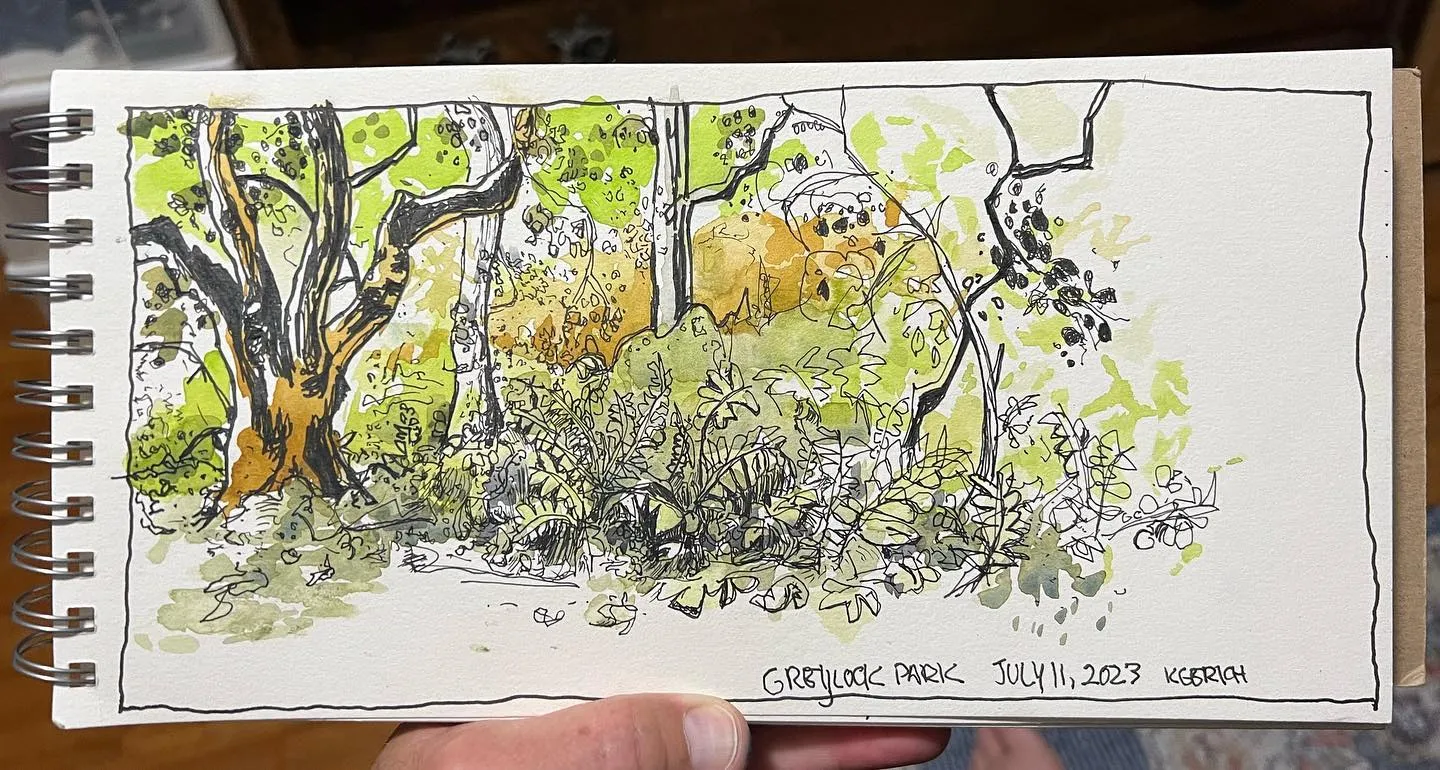 GREYLOCK PARK JULY 11, 2023 KGBRICH